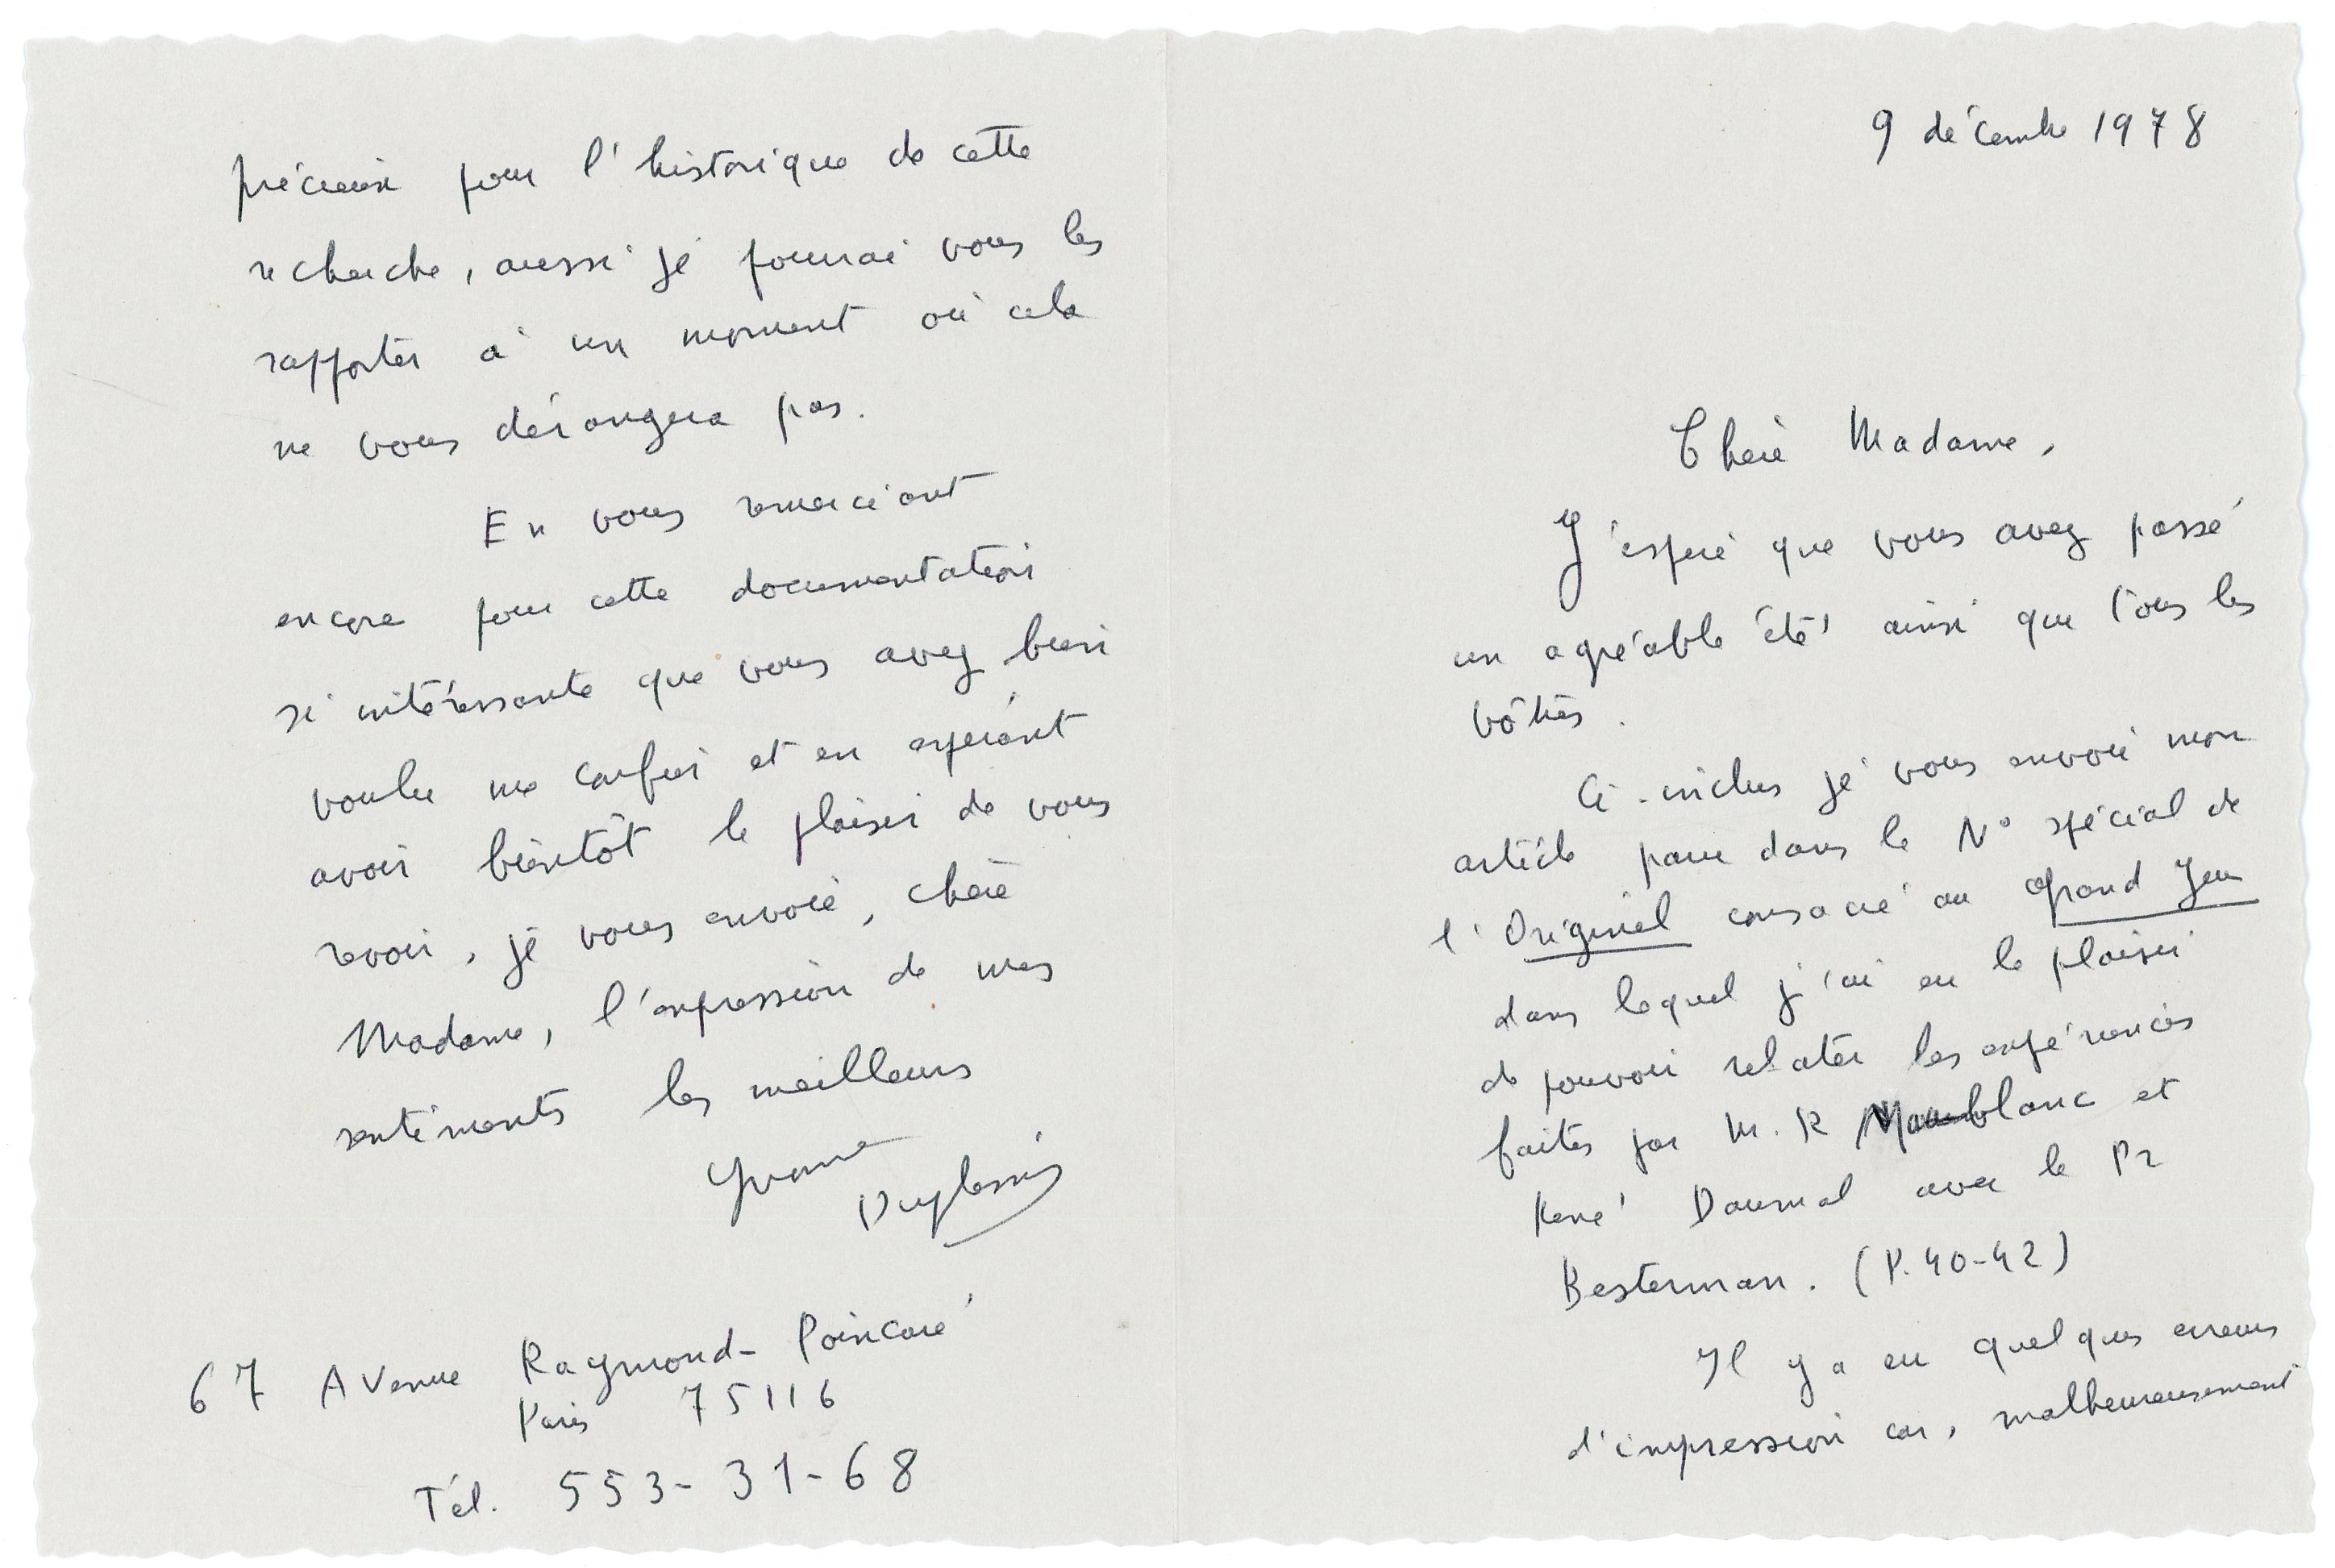 9 décembre 1978
Chère Madame,
J'espère que vous avez passé
un agréable été ainsi que tous les
vôtres.
Ci-inclus je vous envoie mon
article paru dans le N° spécial de
l'Originel consacré au Grand Jeu
dans lequel j'ai eu le plaisir
de pouvoir relater les expériences
faites par M. R Maublanc et
René Daumal avec le Pr
Besterman. (P. 40-42)
Il y a eu quelques erreurs
d'impression car, malheureusement
précieux pour l'historique de cette
recherche, aussi je pourrai vous les
rapporter à un moment où cela
ne vous dérangera pas.
En vous remerciant
encore pour cette documentation
si intéressante que vous avez bien
voulu me confier et en espérant
avoir bientôt le plaisir de vous
revoir, je vous envoie, chère
Madame, l'expression de mes
sentiments les meilleurs
Yvonne
Duplessis
67 Avenue Raymond-Poincaré
Paris 75116
Tél. 553-31-68